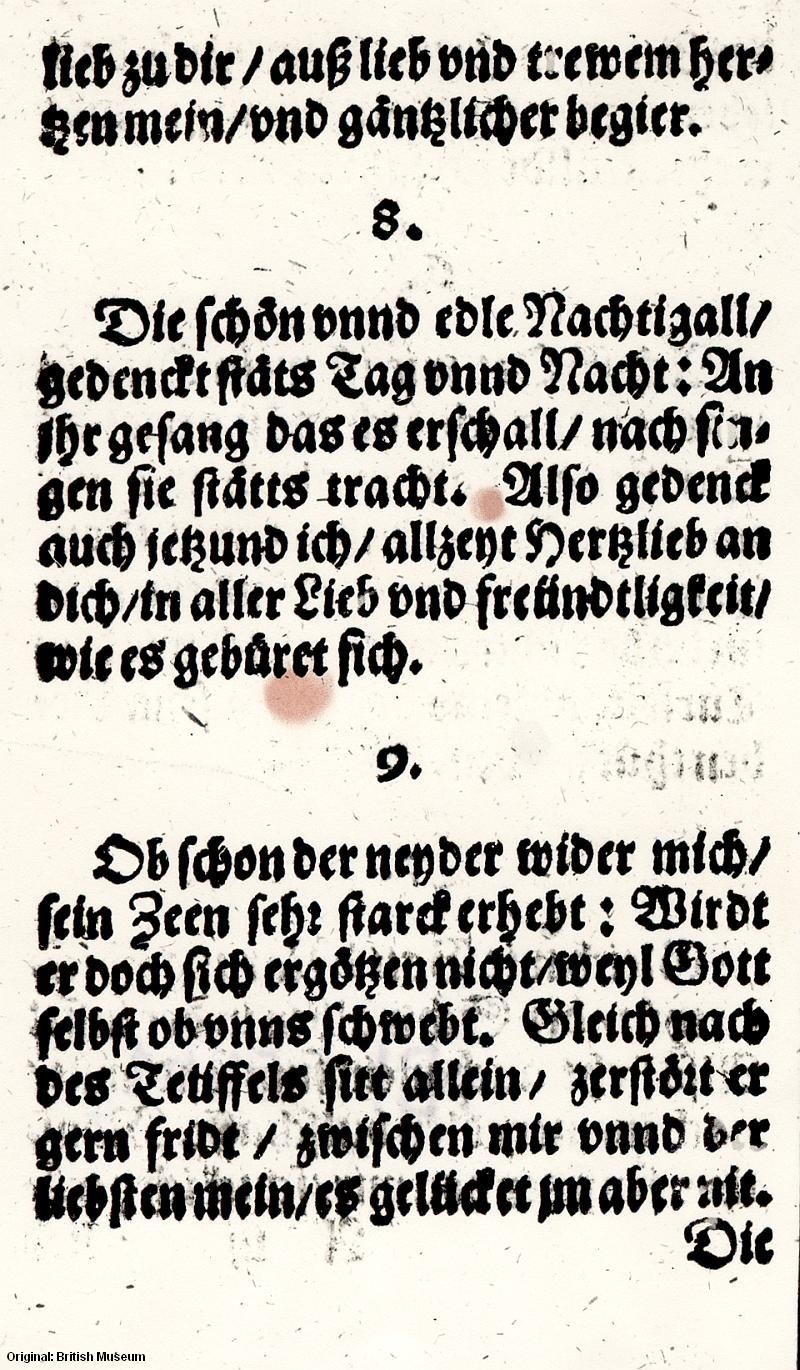 lieb zu dir / auß lieb vnd trewem her-
tzen mein/vnd gäntzlicher begier.
8.
Die schön vnnd edle Nachtigall/
gedenckt stäts Tag vnnd Nacht: An
jhr gesang das es erschall/ nach sin-
gen sie stätts tracht. Also gedenck
auch jetzund ich/ allzeyt Hertzlieb an
dich/in aller Lieb vnd freündtligkeit/
wie es gebüret sich.
9.
Ob schon der neyder wider mich/
sein Zeen sehr starck erhebt: Wirdt
er doch sich ergötzen nicht/weyl Gott
selbst ob vnns schwebt. Gleich nach
des Teüffels sitt allein/ zerstört er
gern fridt / zwischen mir vnnd der
liebsten mein/es gelücket jm aber nit.
Die
Original: British Museum